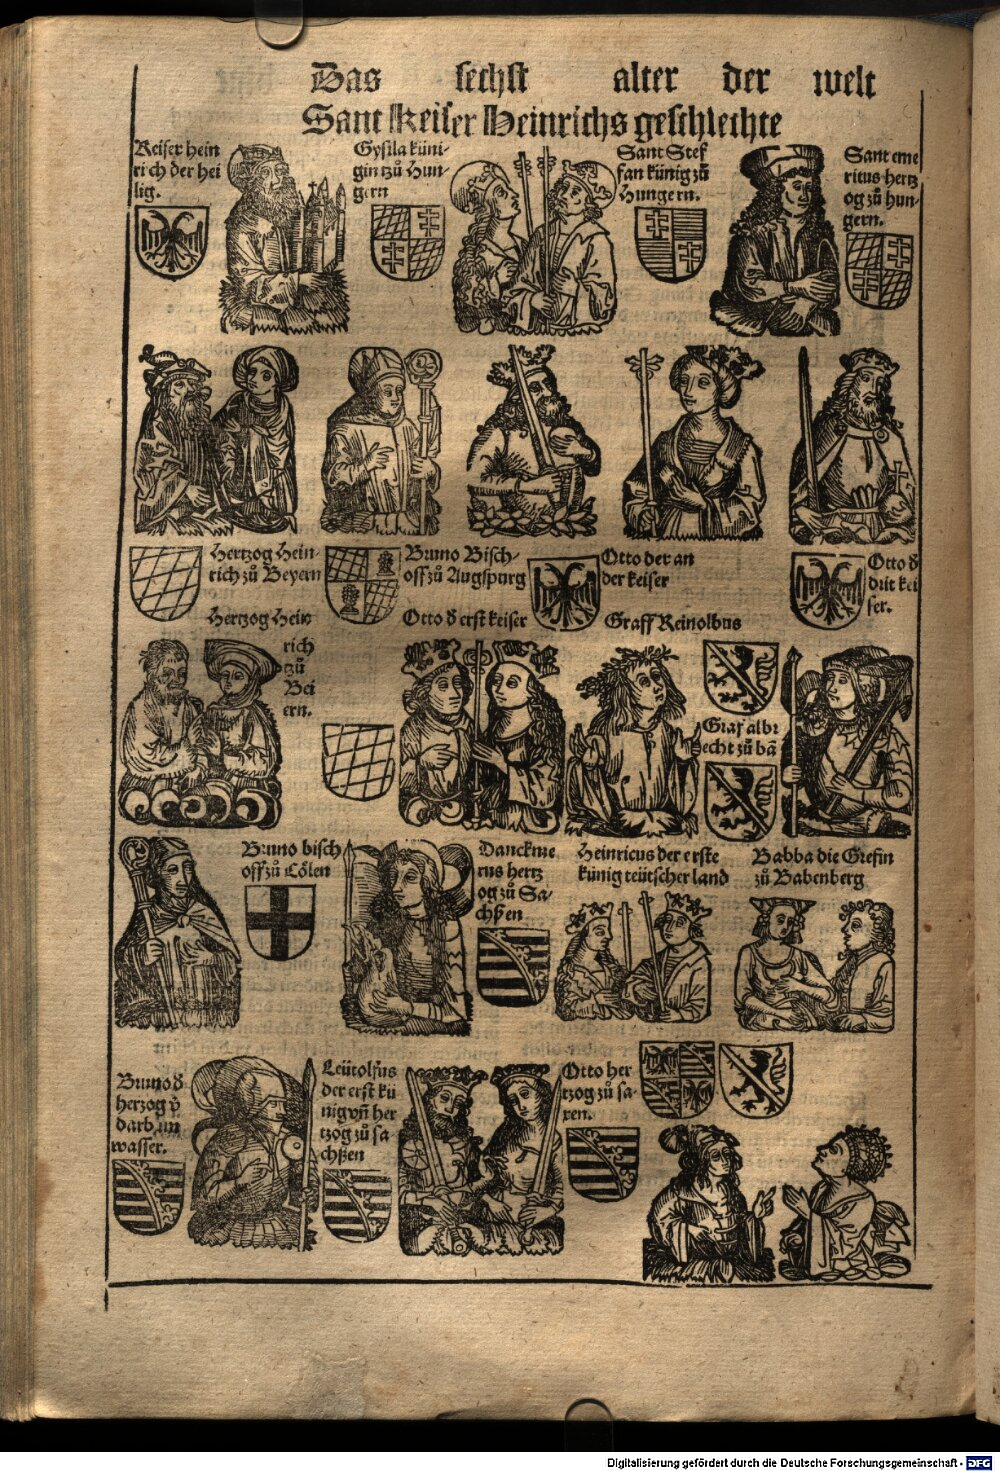 Das sechst alter der welt
Sant Keiser Heinrichs geschlechte
Keiser hein
rich der hei
lig.
Gysila küni-
gin tzů Hun
gern
Sant Stef
fan künig zů
Hungern.
Sant eme
ritus hertz
og zů hun-
gern.
Hertzog Hein-
rich zů Beyern
Bruno Bisch-
off zů Augspurg
Otto der an
der keiser
Otto d̕
drit kei
ser.
Hertzog Hein
rich
tzů
Bei
ern.
Otto d̕ erst keiser
Graff Reinolbus
Graf albr
echt zů bā
Bruno bisch
off zů Cölen
Danckme
rus hertz
og zů Sa-
chßen
Heinricus der erste
künig teütscher land
Babba die Grefin
zů Babenberg
Bruno d̕
hertzog vō
darb im
wasser.
Leütolfus
der erst kü
nig vn̄ her
tzog zů sa
chßen
Otto her
tzog zů sa-
xen.
Digitalisierung gefördert durch die Deutsche Forschungsgemeinschaft - DFG